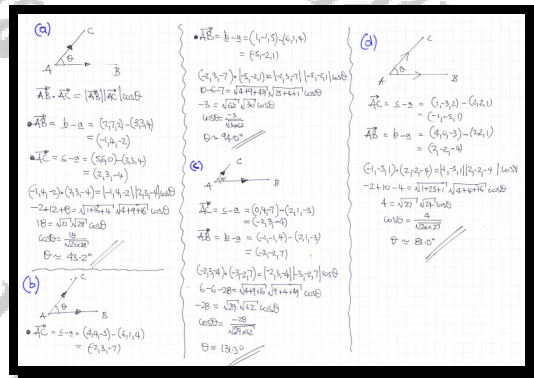 (a)
C
θ
A B
AB · AC = |AB||AC|cosθ
• AB = b - a = (2,7,2) - (3,3,4)
= (-1,4,-2)
• AC = c - a = (5,6,0) - (3,3,4)
= (2,3,-4)
(-1,4,-2)·(2,3,-4) = |-1,4,-2||2,3,-4|cosθ
-2+12+8 = √1+16+4 √4+9+16 cosθ
18 = √21 √29 cosθ
cosθ = 18/√21×29
θ ≈ 43.2°
(b)
C
θ
A B
• AC = c - a = (4,4,-3) - (6,1,4)
= (-2,3,-7)
• AB = b - a = (1,-1,5) - (6,1,4)
= (-5,-2,1)
(-2,3,-7)·(-5,-2,1) = |-2,3,-7||-5,-2,1|cosθ
10-6-7 = √4+9+49 √25+4+1 cosθ
-3 = √62 √30 cosθ
cosθ = -3/√30×62
θ ≈ 94.0°
(c)
C
θ
A B
AC = c - a = (0,4,-7) - (2,1,-3)
= (-2,3,-4)
AB = b - a = (-1,-1,4) - (2,1,-3)
= (-3,-2,7)
(-2,3,-4)·(-3,-2,7) = |-2,3,-4||-3,-2,7|cosθ
6-6-28 = √4+9+16 √9+4+49 cosθ
-28 = √29 √62 cosθ
cosθ = -28/√29×62
θ ≈ 131.3°
(d)
C
θ
A B
AC = c - a = (1,-3,2) - (2,2,1)
= (-1,-5,1)
AB = b - a = (4,0,-3) - (2,2,1)
= (2,-2,-4)
(-1,-5,1)·(2,-2,-4) = |-1,-5,1||2,-2,-4|cosθ
-2+10-4 = √1+25+1 √4+4+16 cosθ
4 = √27 √24 cosθ
cosθ = 4/√24×27
θ ≈ 81.0°